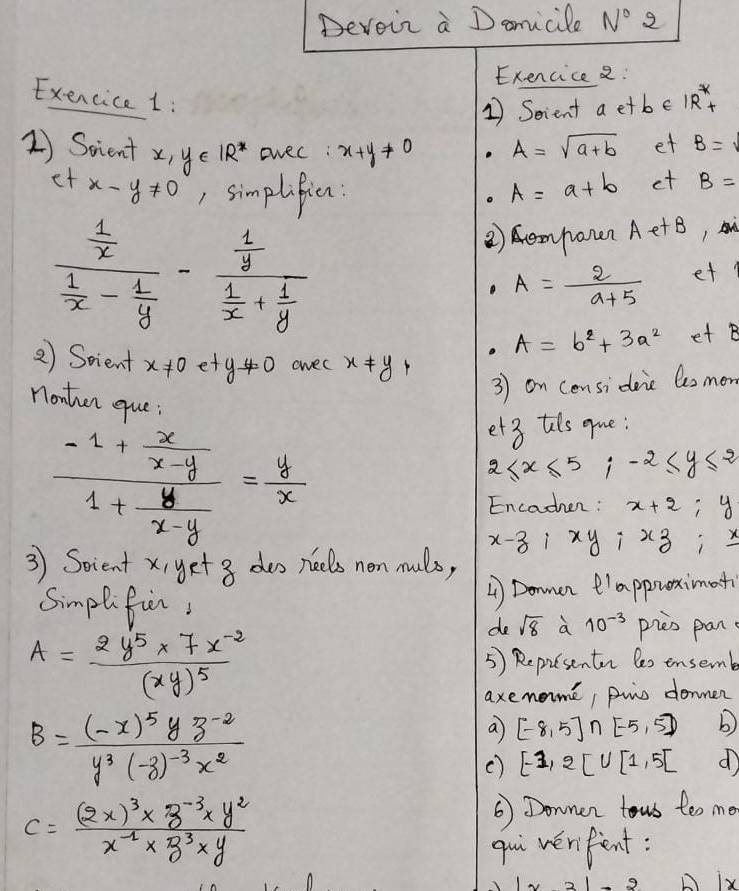 Devoir à Domicile N° 2
Exercice 1 :
1) Soient x, y ∈ IR* avec : x+y ≠ 0
et x - y ≠ 0 , simplifier :
(1/x)/(1/x - 1/y) - (1/y)/(1/x + 1/y)
2) Soient x ≠ 0 et y ≠ 0 avec x ≠ y ,
Montrer que :
(-1 + x/(x-y))/(1 + y/(x-y)) = y/x
3) Soient x, y et z des réels non nuls,
Simplifier :
A = (2 y⁵ × 7 x⁻²)/(xy)⁵
B = ((-x)⁵ y z⁻²)/(y³ (-z)⁻³ x²)
C = ((2x)³ × z⁻³ × y²)/(x⁻¹ × z³ × y)
Exercice 2 :
1) Soient a et b ∈ IR*+
• A = √(a+b) et B = √
• A = a + b et B =
2) Comparer A et B ,
• A = 2/(a+5) et
• A = b² + 3a² et B
3) On considère les nom
et z tels que :
2 ≤ x ≤ 5 ; -2 ≤ y ≤ 2
Encadrer : x + 2 ; y
x - z ; xy ; xz ; x
4) Donner l'approximati
de √8 à 10⁻³ près par
5) Représenter les ensemb
axe normé, puis donner
a) [-8, 5] ∩ [-5, 5] b)
c) [-1, 2[ ∪ [1, 5[ d)
6) Donner tous les no
qui vérifient :